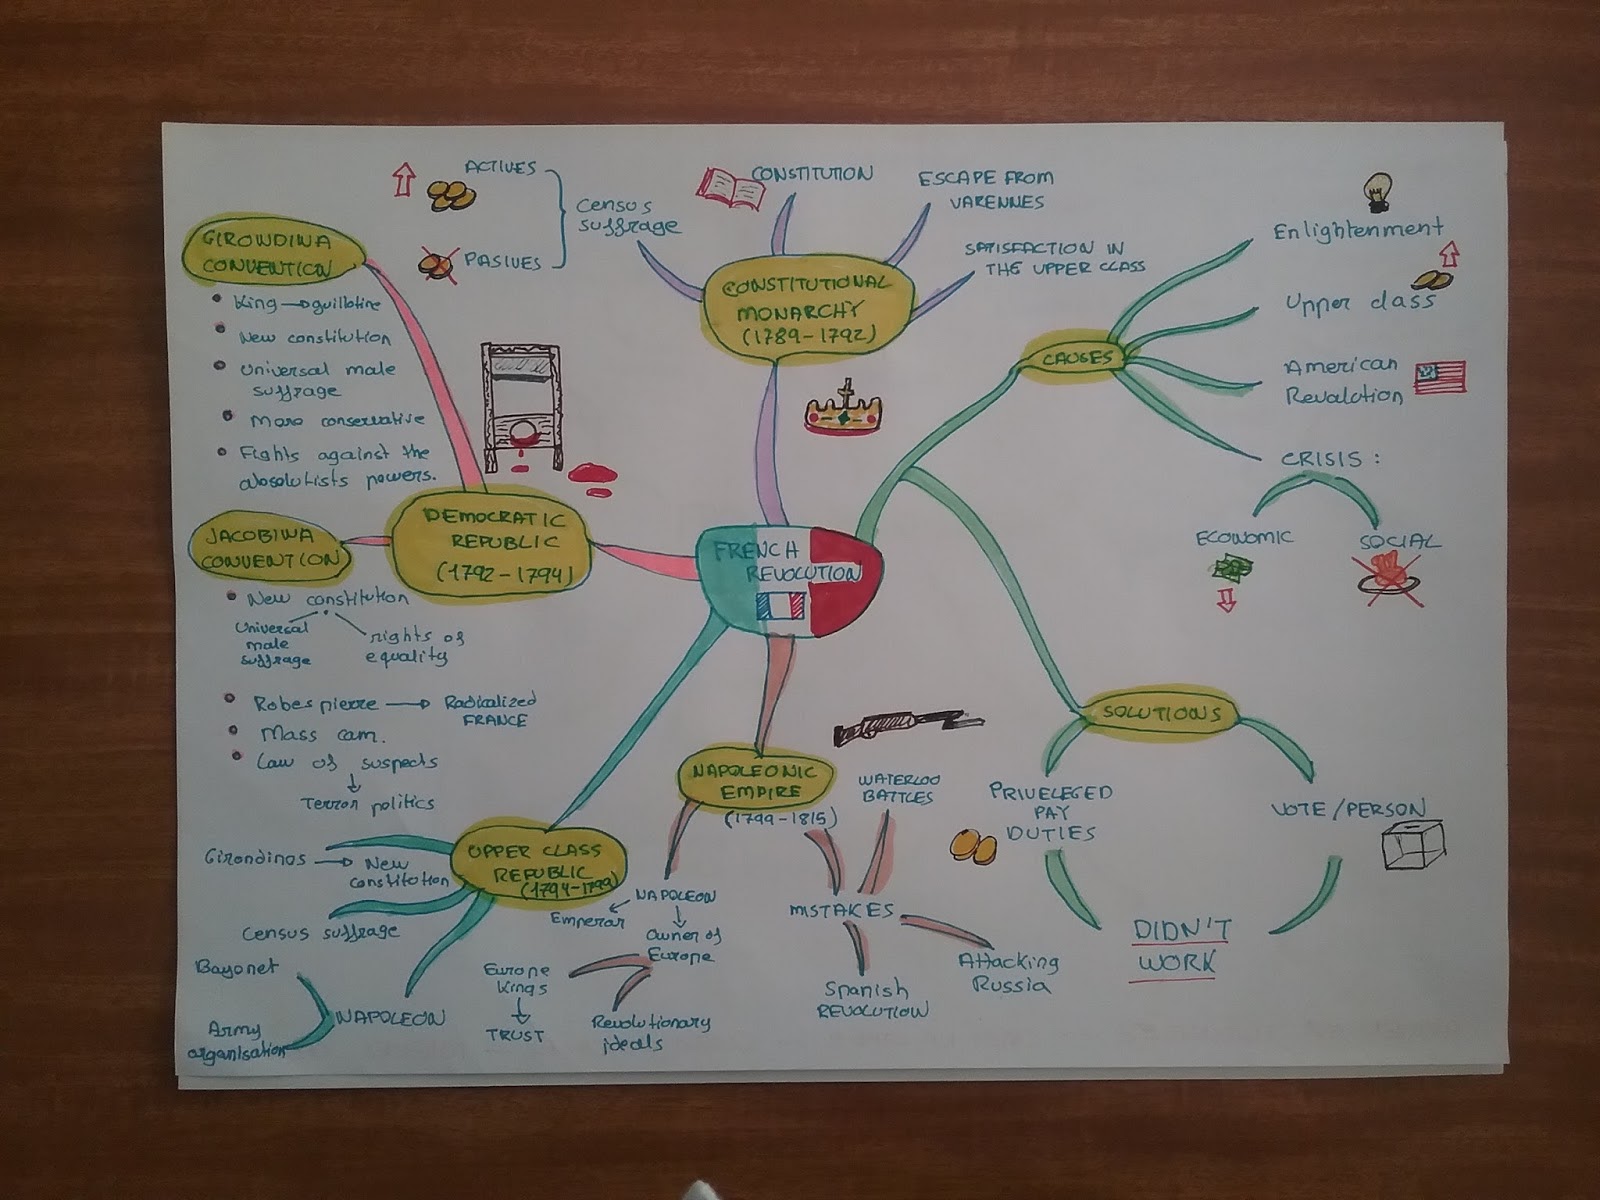 FRENCH
REVOLUTION
CAUSES
Enlightenment
Upper class
American
Revolution
CRISIS :
ECONOMIC
SOCIAL
SOLUTIONS
PRIVELEGED
PAY
DUTIES
VOTE/PERSON
DIDN'T
WORK
CONSTITUTIONAL
MONARCHY
(1789-1792)
Census
suffrage
ACTIVES
PASIVES
CONSTITUTION
ESCAPE FROM
VARENNES
SATISFACTION IN
THE UPPER CLASS
DEMOCRATIC
REPUBLIC
(1792-1794)
GIRONDINA
CONVENTION
• King → guillotine
• New constitution
• Universal male
suffrage
• More conservative
• Fights against the
absolutists powers.
JACOBINA
CONVENTION
• New constitution
Universal
male
suffrage
rights of
equality
• Robespierre → Radicalized
FRANCE
• Mass cam.
• Law of suspects
↓
Terror politics
UPPER CLASS
REPUBLIC
(1794-1799)
Girondinos → New
constitution
Census suffrage
NAPOLEON
Bayonet
Army
organisation
NAPOLEONIC
EMPIRE
(1799-1815)
NAPOLEON
Emperor
Owner of
Europe
Europe
kings
↓
TRUST
Revolutionary
ideals
MISTAKES
WATERLOO
BATTLES
Spanish
REVOLUTION
Attacking
Russia